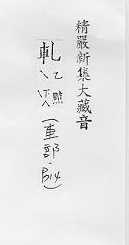 精嚴新集大藏音
軋
（車部·B14）